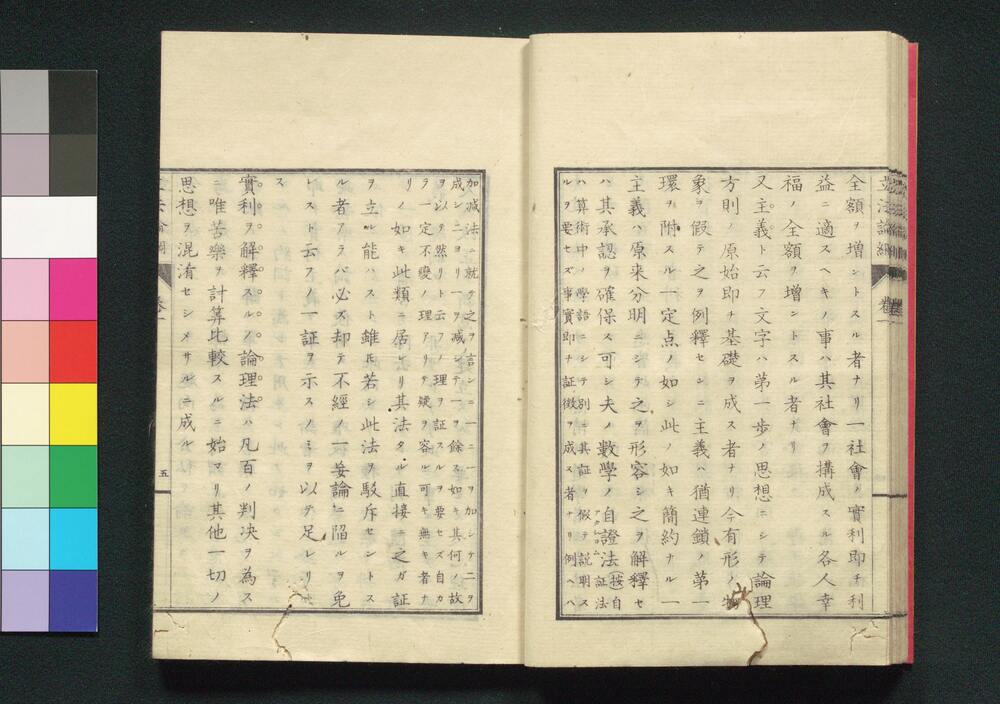 立法論綱 卷一
全額ヲ増ントスル者ナリ一社會ノ實利即チ利
益ニ適スヘキノ事ハ其社會ヲ構成スル各人幸
福ノ全額ヲ増ントスル者ナリ
又主義ト云フ文字ハ第一歩ノ思想ニシテ論理
方則ノ原始即チ基礎ヲ成ス者ナリ今有形ノ物
象ヲ假テ之ヲ例釋センニ主義ハ猶連鎖ノ第一
環ヲ附スル一定点ノ如シ此ノ如キ簡約ナル一
主義ハ原来分明ニシテ之ヲ形容シ之ヲ解釋セ
ハ其承認ヲ確保ス可シ夫ノ數學ノ自證法（按自證法
ハ算術中ノ學語ニシテ別ニ其証ヲ假テ説明ス
ルヲ要セズ事實即チ証徴ヲ成ス者ナリ例ヘハ
加減法ニ就テ之ヲ言ンニ一ニ一ヲ加シテ二ヲ
成シ二ヨリ一ヲ減シテ一ヲ餘ス如キ其何ノ故
ヲ以テ然リト云フノ理ヲ証スルヲ要セズ自カ
ラ一定不變ノ理アリテ疑ヲ容ル可キ無キ者ナ
リ
ノ如キ此類ニ居レリ其法タル直接ニ之ガ証
ヲ立ル能ハスト雖𪜈若シ此法ヲ駁斥セントス
ル者アラバ必ス却テ不經ノ妄論ニ陥ルヲ免
レスト云フノ一証ヲ示スノミヲ以テ足レリトス
實利ヲ解釋スルノ論理法ハ凡百ノ判决ヲ為ス
ニ唯苦樂ヲ計算比較スルニ始マリ其他一切ノ
思想ヲ混淆セシメサルニ成ル
五